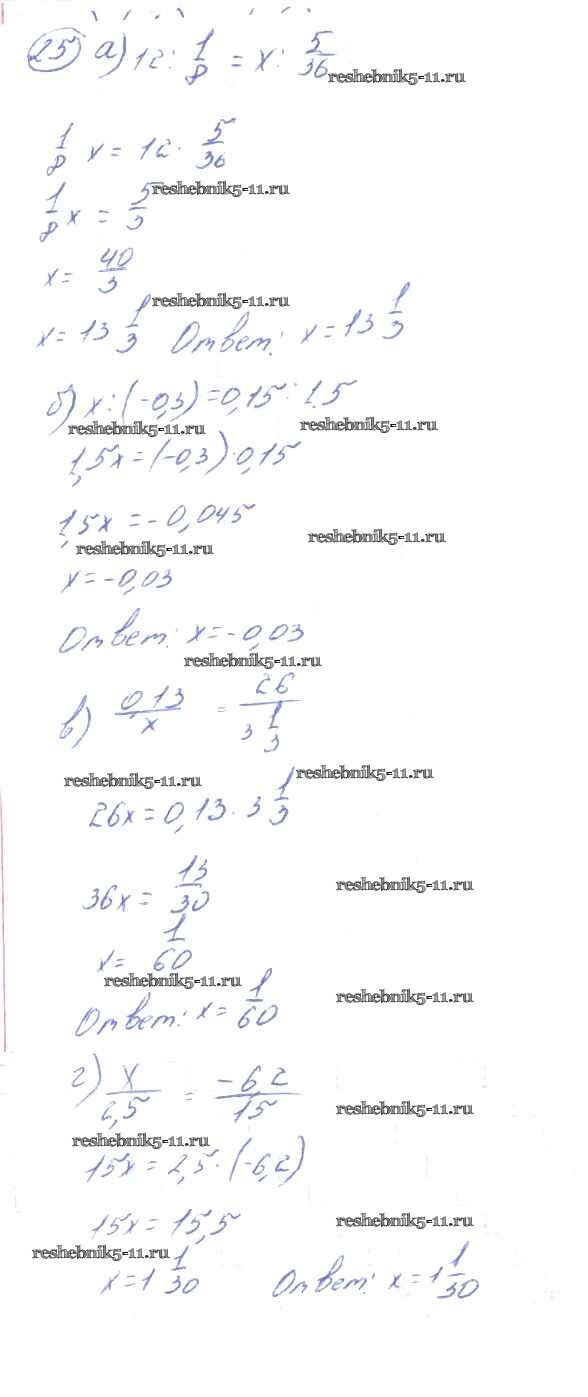 25 а) 12 : 1/8 = x : 5/36
reshebnik5-11.ru
1/8 x = 12 · 5/36
reshebnik5-11.ru
1/8 x = 5/3
x = 40/3
reshebnik5-11.ru
x = 13 1/3 Ответ: x = 13 1/3
б) x : (-0,3) = 0,15 : 1,5
reshebnik5-11.ru reshebnik5-11.ru
1,5x = (-0,3) · 0,15
1,5x = -0,045
reshebnik5-11.ru reshebnik5-11.ru
x = -0,03
Ответ: x = -0,03
reshebnik5-11.ru
в) 0,13/x = 26/3 1/3
reshebnik5-11.ru reshebnik5-11.ru
26x = 0,13 · 3 1/3
36x = 13/30
reshebnik5-11.ru
x = 1/60
reshebnik5-11.ru
Ответ: x = 1/60
reshebnik5-11.ru
г) x/2,5 = -6,2/15
reshebnik5-11.ru
reshebnik5-11.ru
15x = 2,5 · (-6,2)
15x = 15,5
reshebnik5-11.ru
reshebnik5-11.ru
x = 1 1/30 Ответ: x = 1 1/30